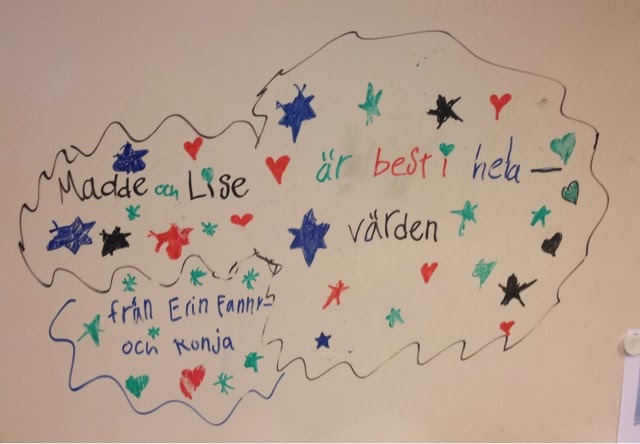 Madde och Lise
är best i hela —
värden
från Erin Fanny
och Ronja